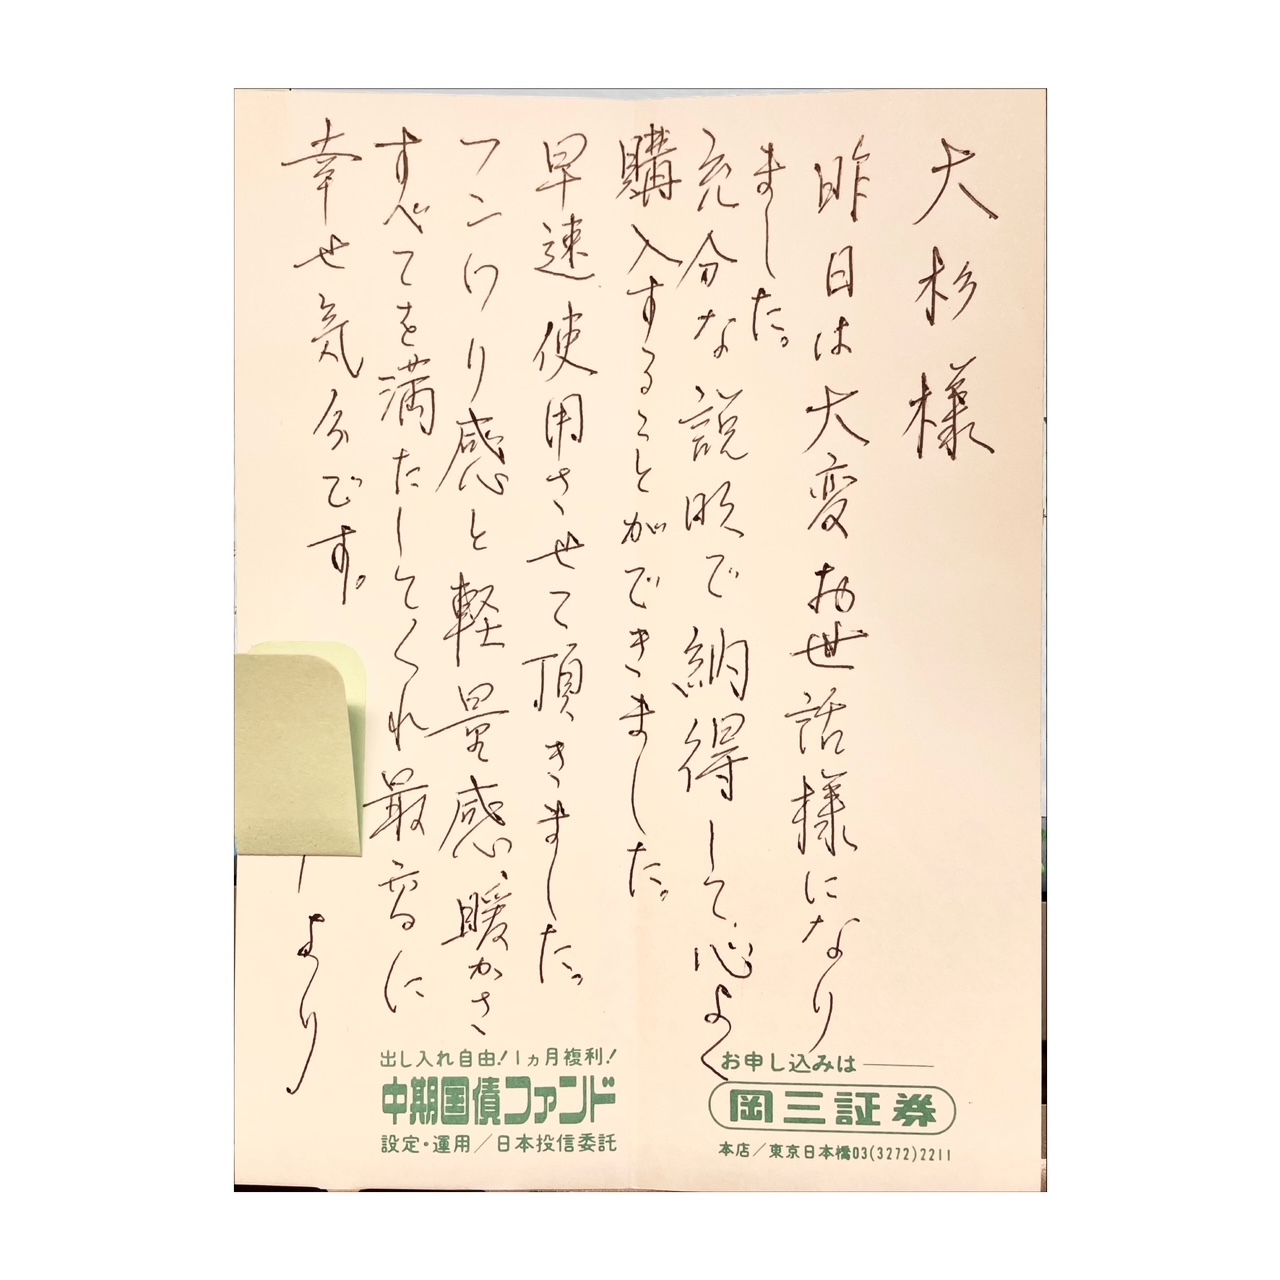 大杉様
昨日は大変お世話様になり
ました。
充分な説明で納得して、心よく
購入することができました。
早速使用させて頂きました。
フンワリ感と軽量感、暖かさ
すべてを満たしてくれ最高に
幸せ気分です。
より
お申し込みは
岡三証券
本店／東京日本橋03(3272)2211
出し入れ自由！1ヵ月複利！
中期国債ファンド
設定・運用／日本投信委託